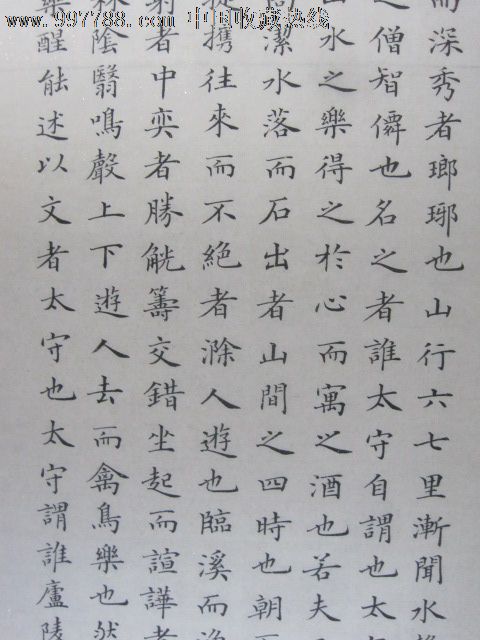 www.997788.com 中国收藏热线
而深秀者瑯琊也山行六七里漸聞水
之僧智僊也名之者誰太守自謂也太
山水之樂得之於心而寓之酒也若夫
潔水落而石出者山間之四時也朝而
提攜往來而不絕者滁人遊也臨溪而漁
射者中奕者勝觥籌交錯坐起而諠譁者
林陰翳鳴聲上下遊人去而禽鳥樂也然
樂醒能述以文者太守也太守謂誰廬陵